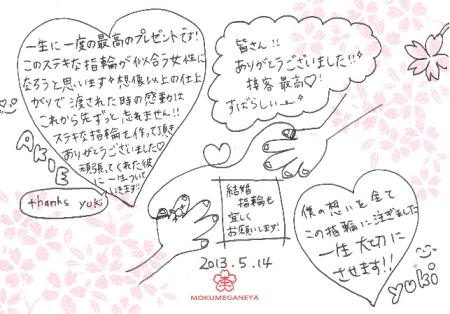 一生に一度の最高のプレゼントです!
このステキな指輪が似合う女性に
なろうと思います。想像以上の仕上
がりで渡された時の感動は
これから先ずっと忘れません!!
ステキな指輪を作って頂き
ありがとうございました♡
頑張ってくれた彼
に一生ついて
いきます!
AKIE
thanks yuki
皆さん!!
ありがとうございました!!
接客最高♡!
すばらしぃー
結婚
指輪も
宜しく
お願いします!
2013.5.14
MOKUMEGANEYA
僕の想いを全て
この指輪に注ぎました
一生大切に
させます!!
yuki